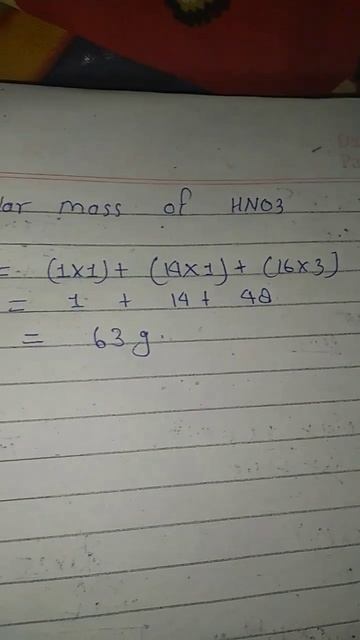 lar mass of HNO3
= (1x1) + (14x1) + (16x3)
= 1 + 14 + 48
= 63 g.